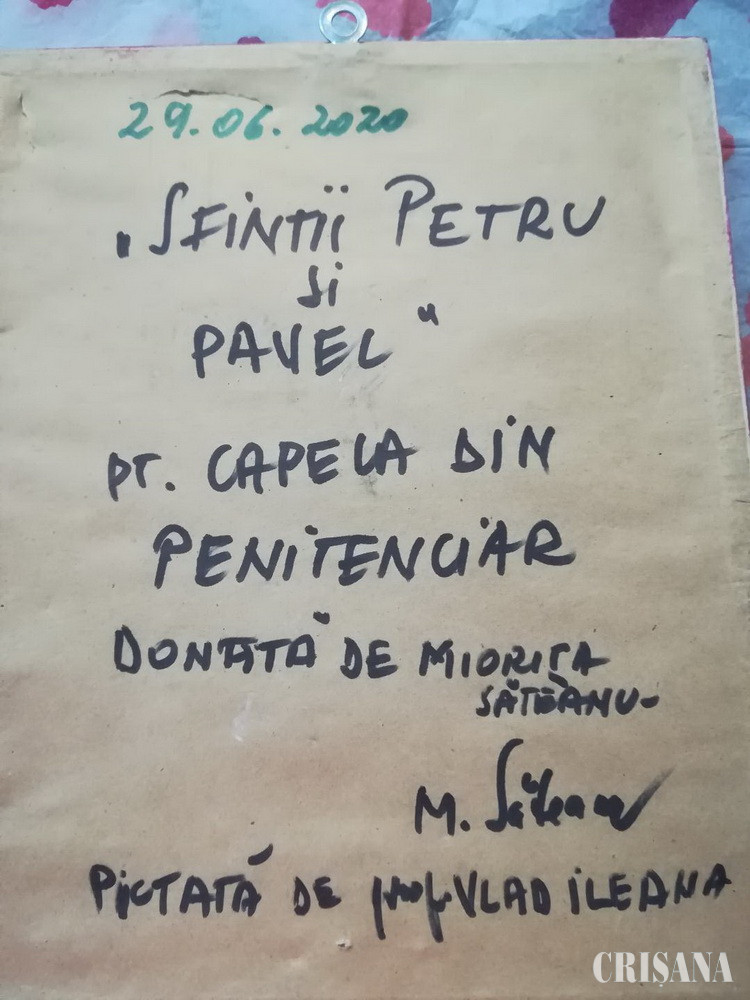 29.06.2020
„SFINȚII PETRU
și
PAVEL"
pt. CAPELA DIN
PENITENCIAR
DONATĂ DE MIORIȚA
SĂTEANU-
M. Săteanu
PICTATĂ DE prof VLAD ILEANA
CRIȘANA